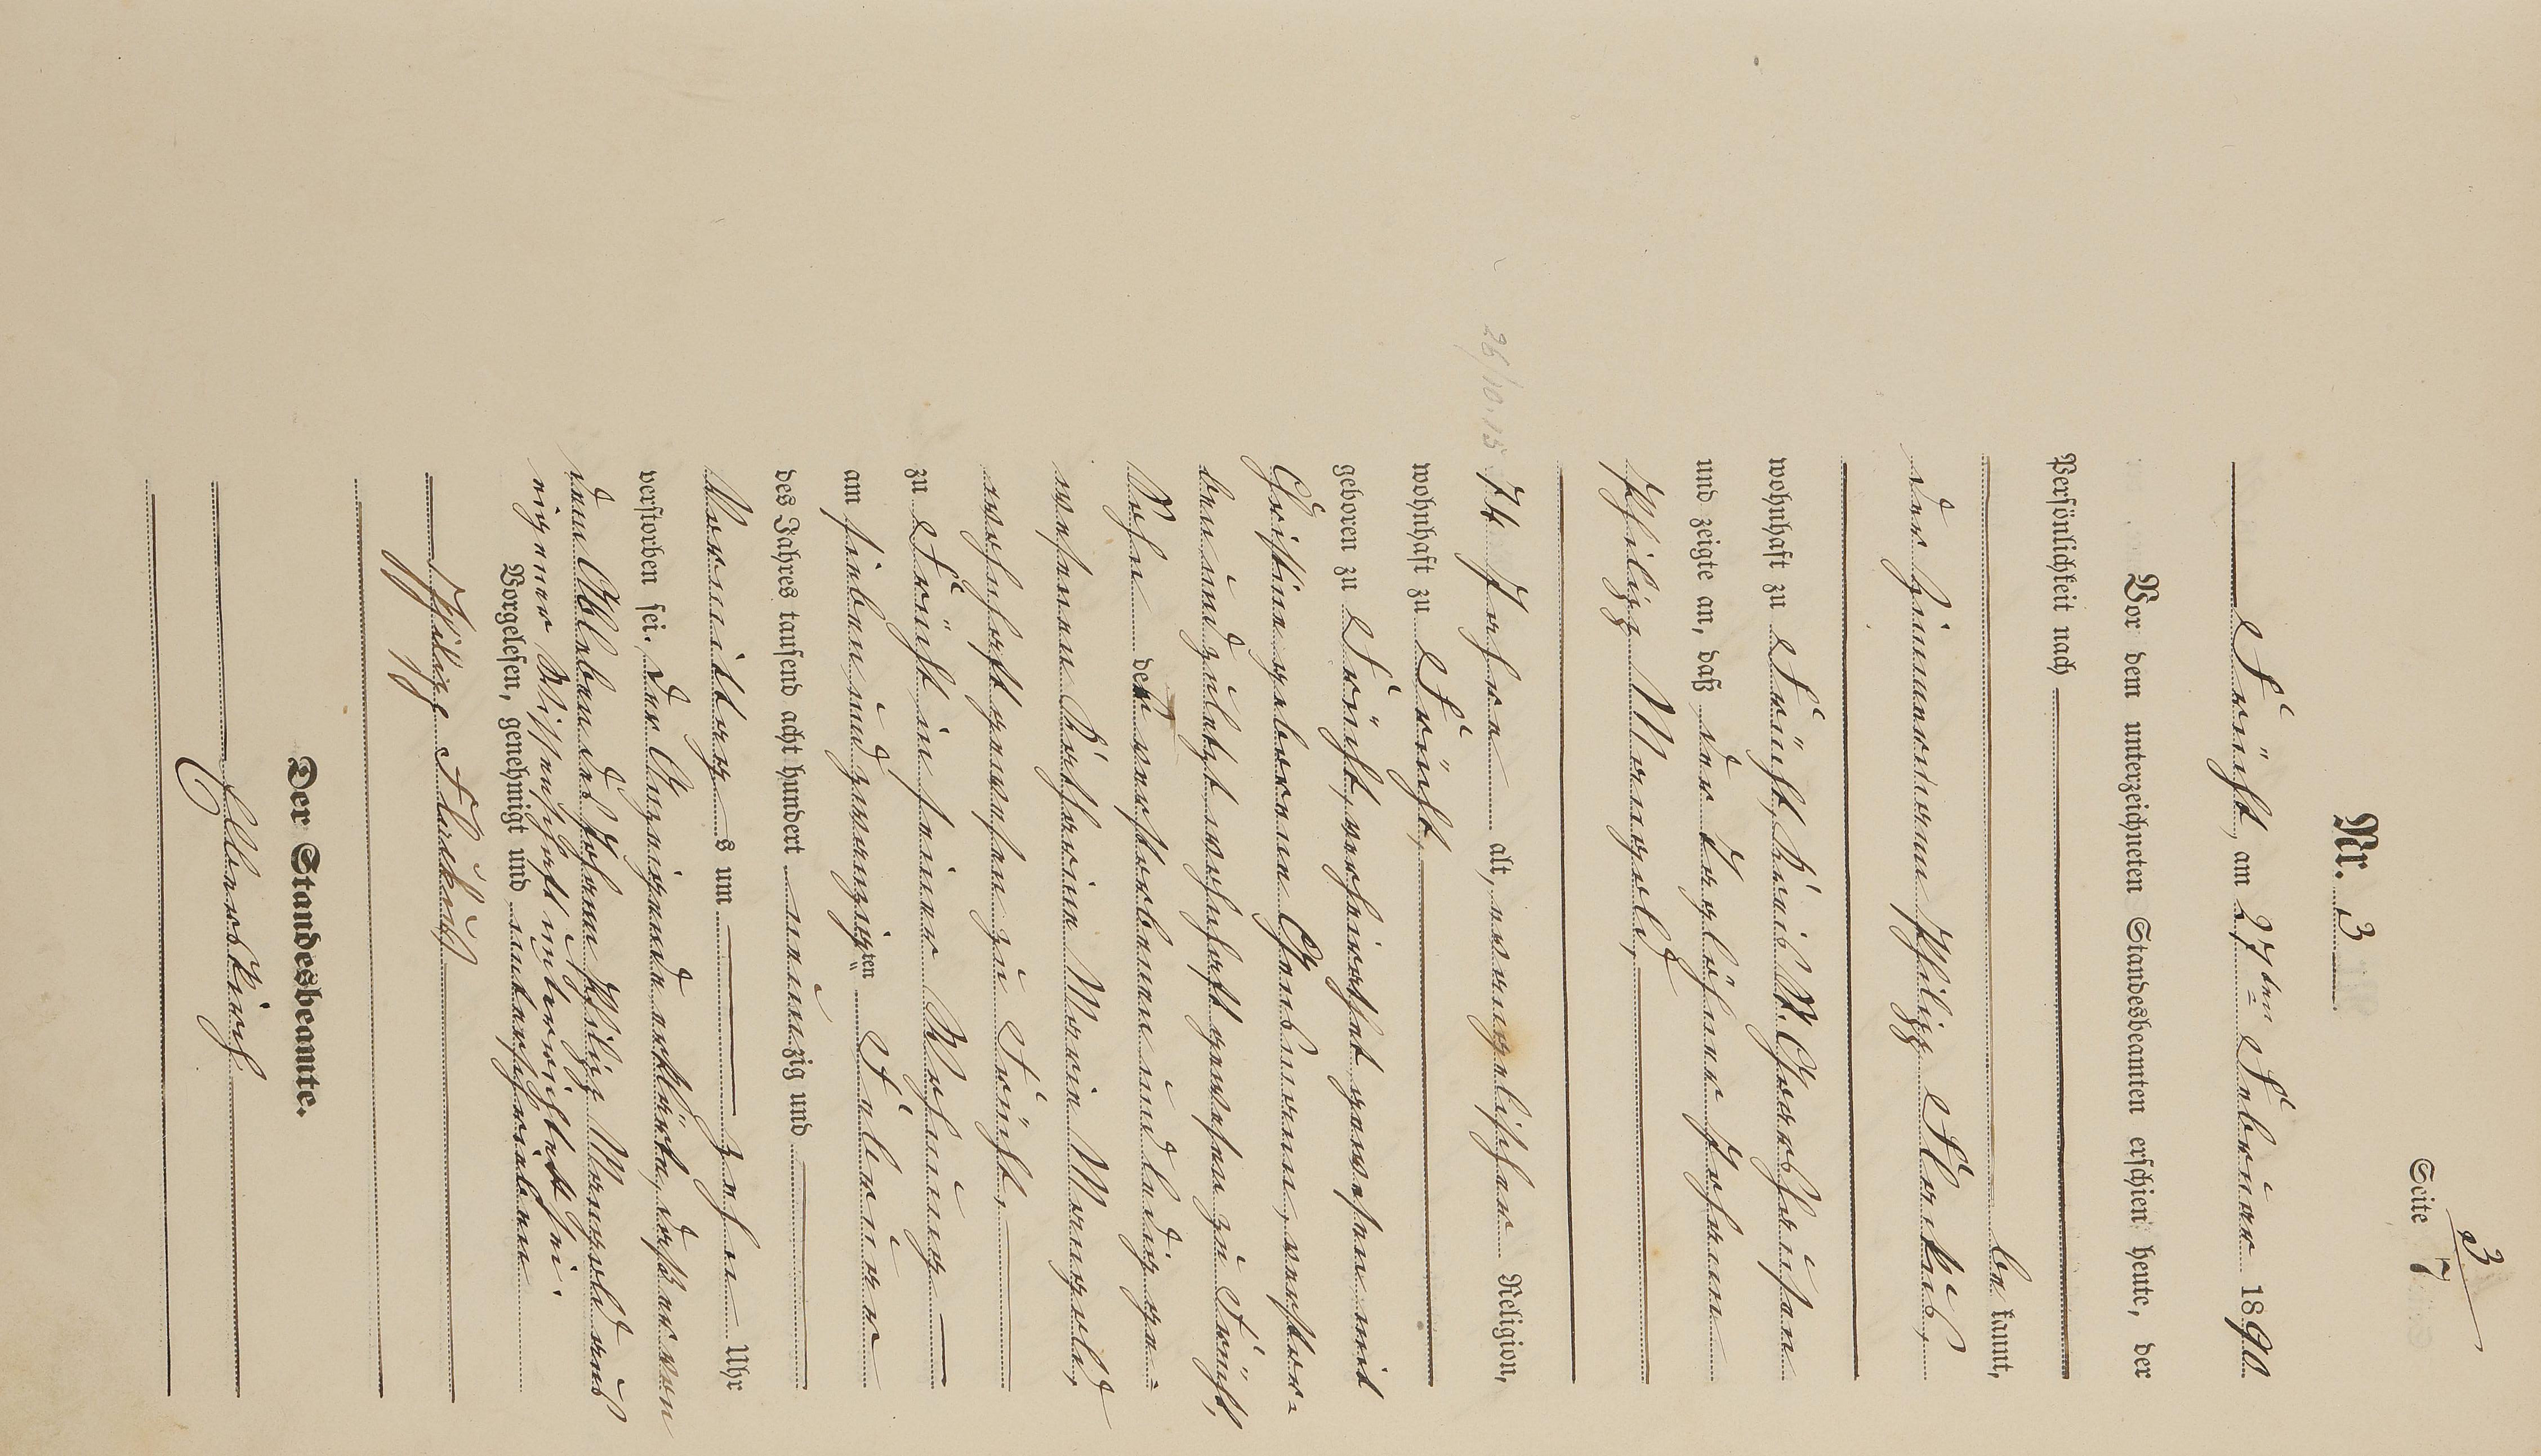 Seite 7
3
Nr. 3
Frücht, am 27ten Februar 1890.
Vor dem unterzeichneten Standesbeamten erschien heute, der
Persönlichkeit nach
be kannt,
der Zimmermann Philipp
wohnhaft zu Frücht, Kreis St. Goarshausen
und zeigte an, daß der Taglöhner Johann
Philipp Mangold,
26/10.15
74 Jahre alt, evangelischer Religion,
wohnhaft zu Frücht,
geboren zu Frücht, verheirathet gewesen mit
Christine geborenen verstor=
ben und zuletzt wohnhaft gewesen zu Frücht,
Sohn der verstorbenen und ledig ge=
wesenen Katharine Marie Mangold,
wohnhaft gewesen zu Frücht,
zu Frücht in seiner Wohnung
am sieben und zwanzigsten Februar
des Jahres tausend acht hundert neunzig und
Vormittags um zehn Uhr
verstorben sei. Der Anzeigende erklärte, daß er von
dem Ableben des Johann Philipp Mangold aus
eigener Wissenschaft unterrichtet sei.
Vorgelesen, genehmigt und unterschrieben
Philipp
Der Standesbeamte.